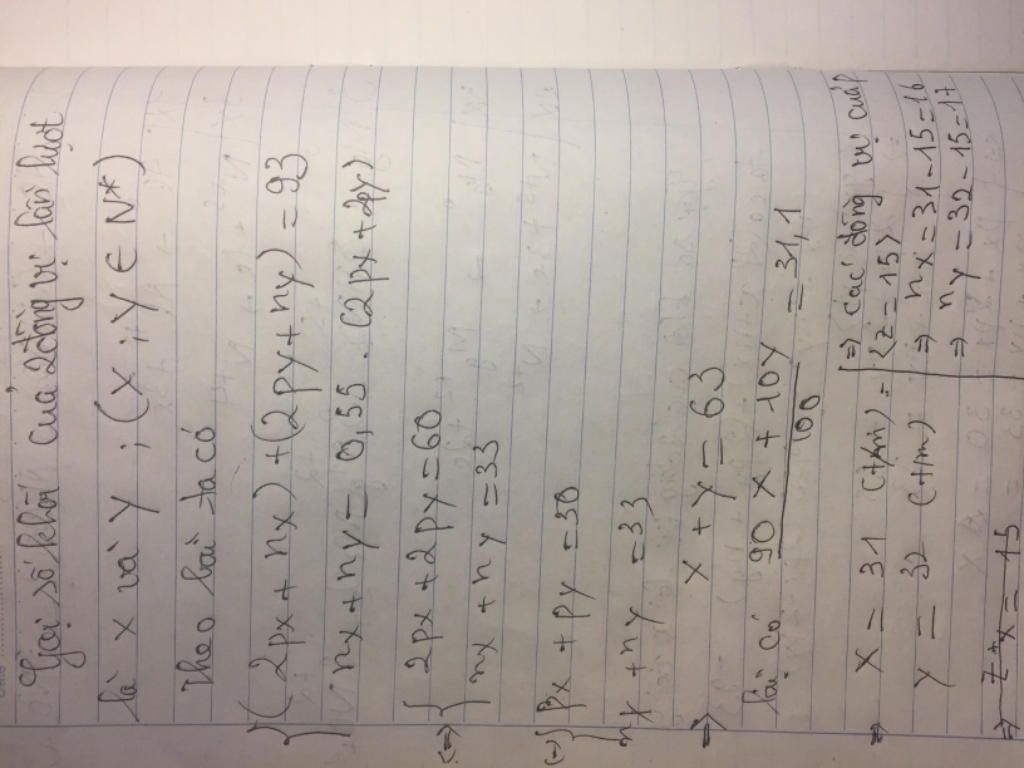 Gọi số khối của 2 đồng vị lần lượt
là X và Y ; (X ; Y ∈ N*)
Theo bài ta có
{ (2px + nx) + (2py + ny) = 93
nx + ny = 0,55 . (2px + 2py)
(=) { 2px + 2py = 60
nx + ny = 33
(=) { px + py = 30
nx + ny = 33
=> X + Y = 63
lại có 90 X + 10Y / 100 = 31,1
=> X = 31 (+/m)
Y = 32 (t/m)
=> Z+x = 15
=> các đồng vị của P
(Z = 15)
=> nx = 31 - 15 = 16
=> ny = 32 - 15 = 17